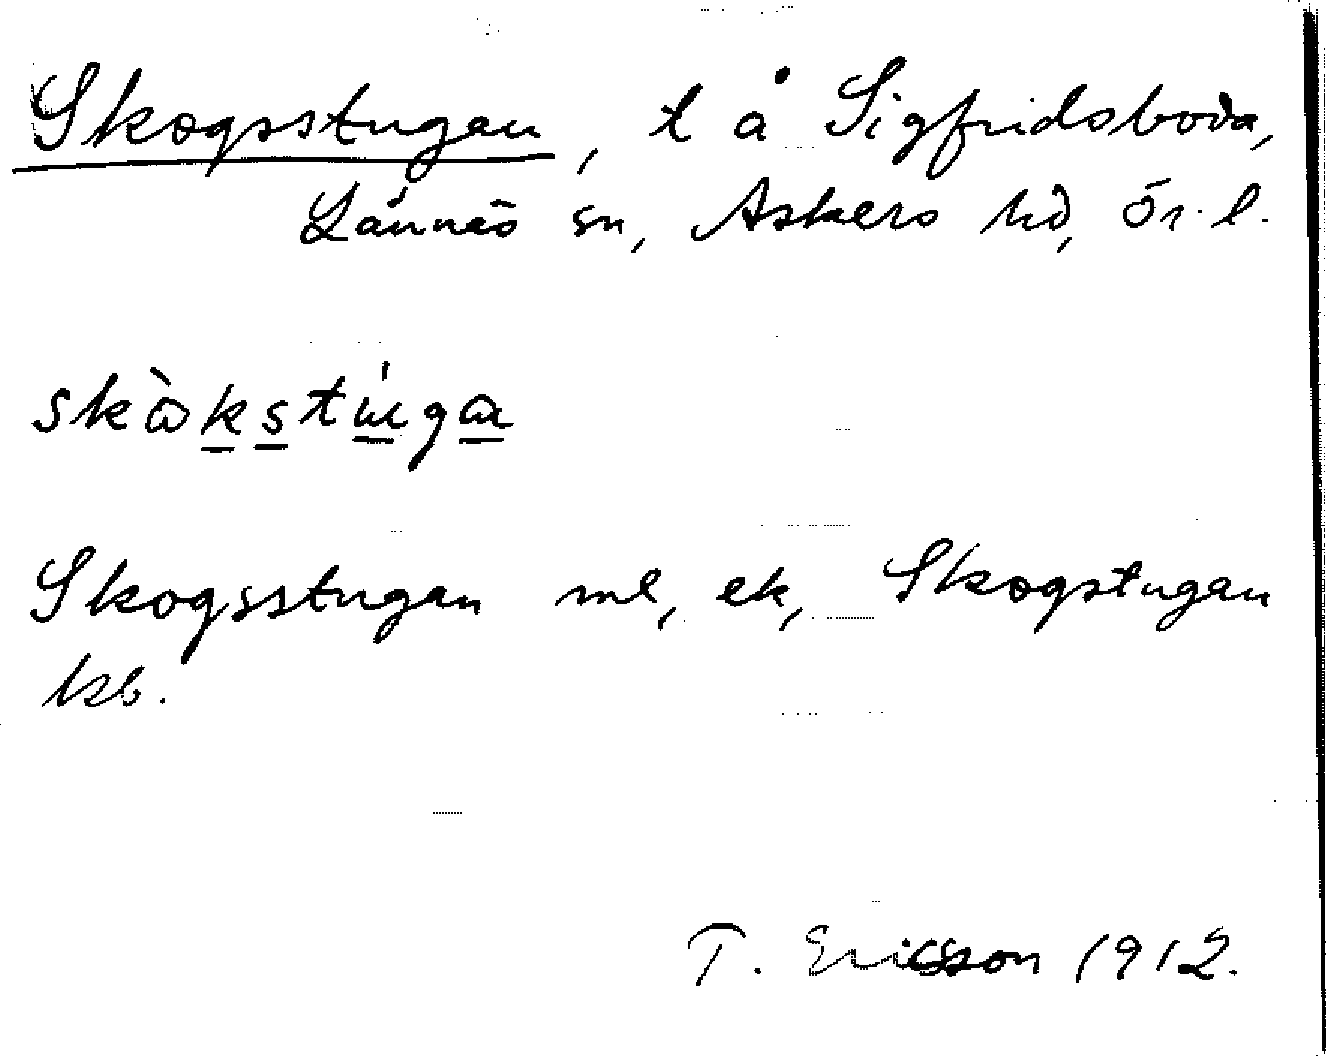 Skogsstugan, t å Sigfridsboda,
Lännäs sn, Askers hd, Ör. l.
skὼkstúga
Skogsstugan ml, ek, Skogstugan
kb.
T. Ericsson 1912.